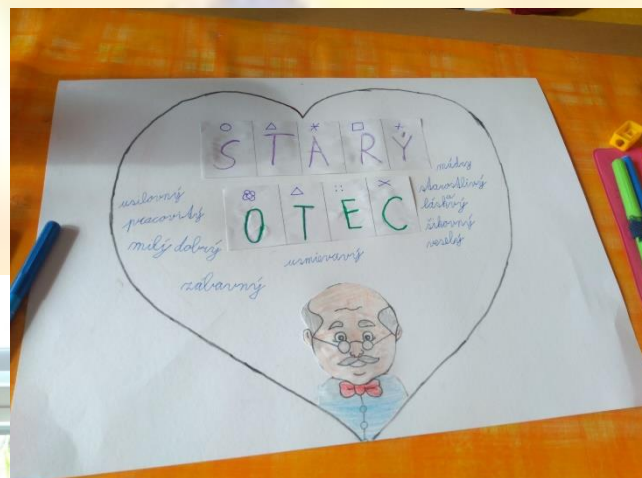 STARÝ
OTEC
usilovný
pracovitý
milý dobrý
zábavný
usmievavý
múdry
starostlivý
láskavý
šikovný
veselý